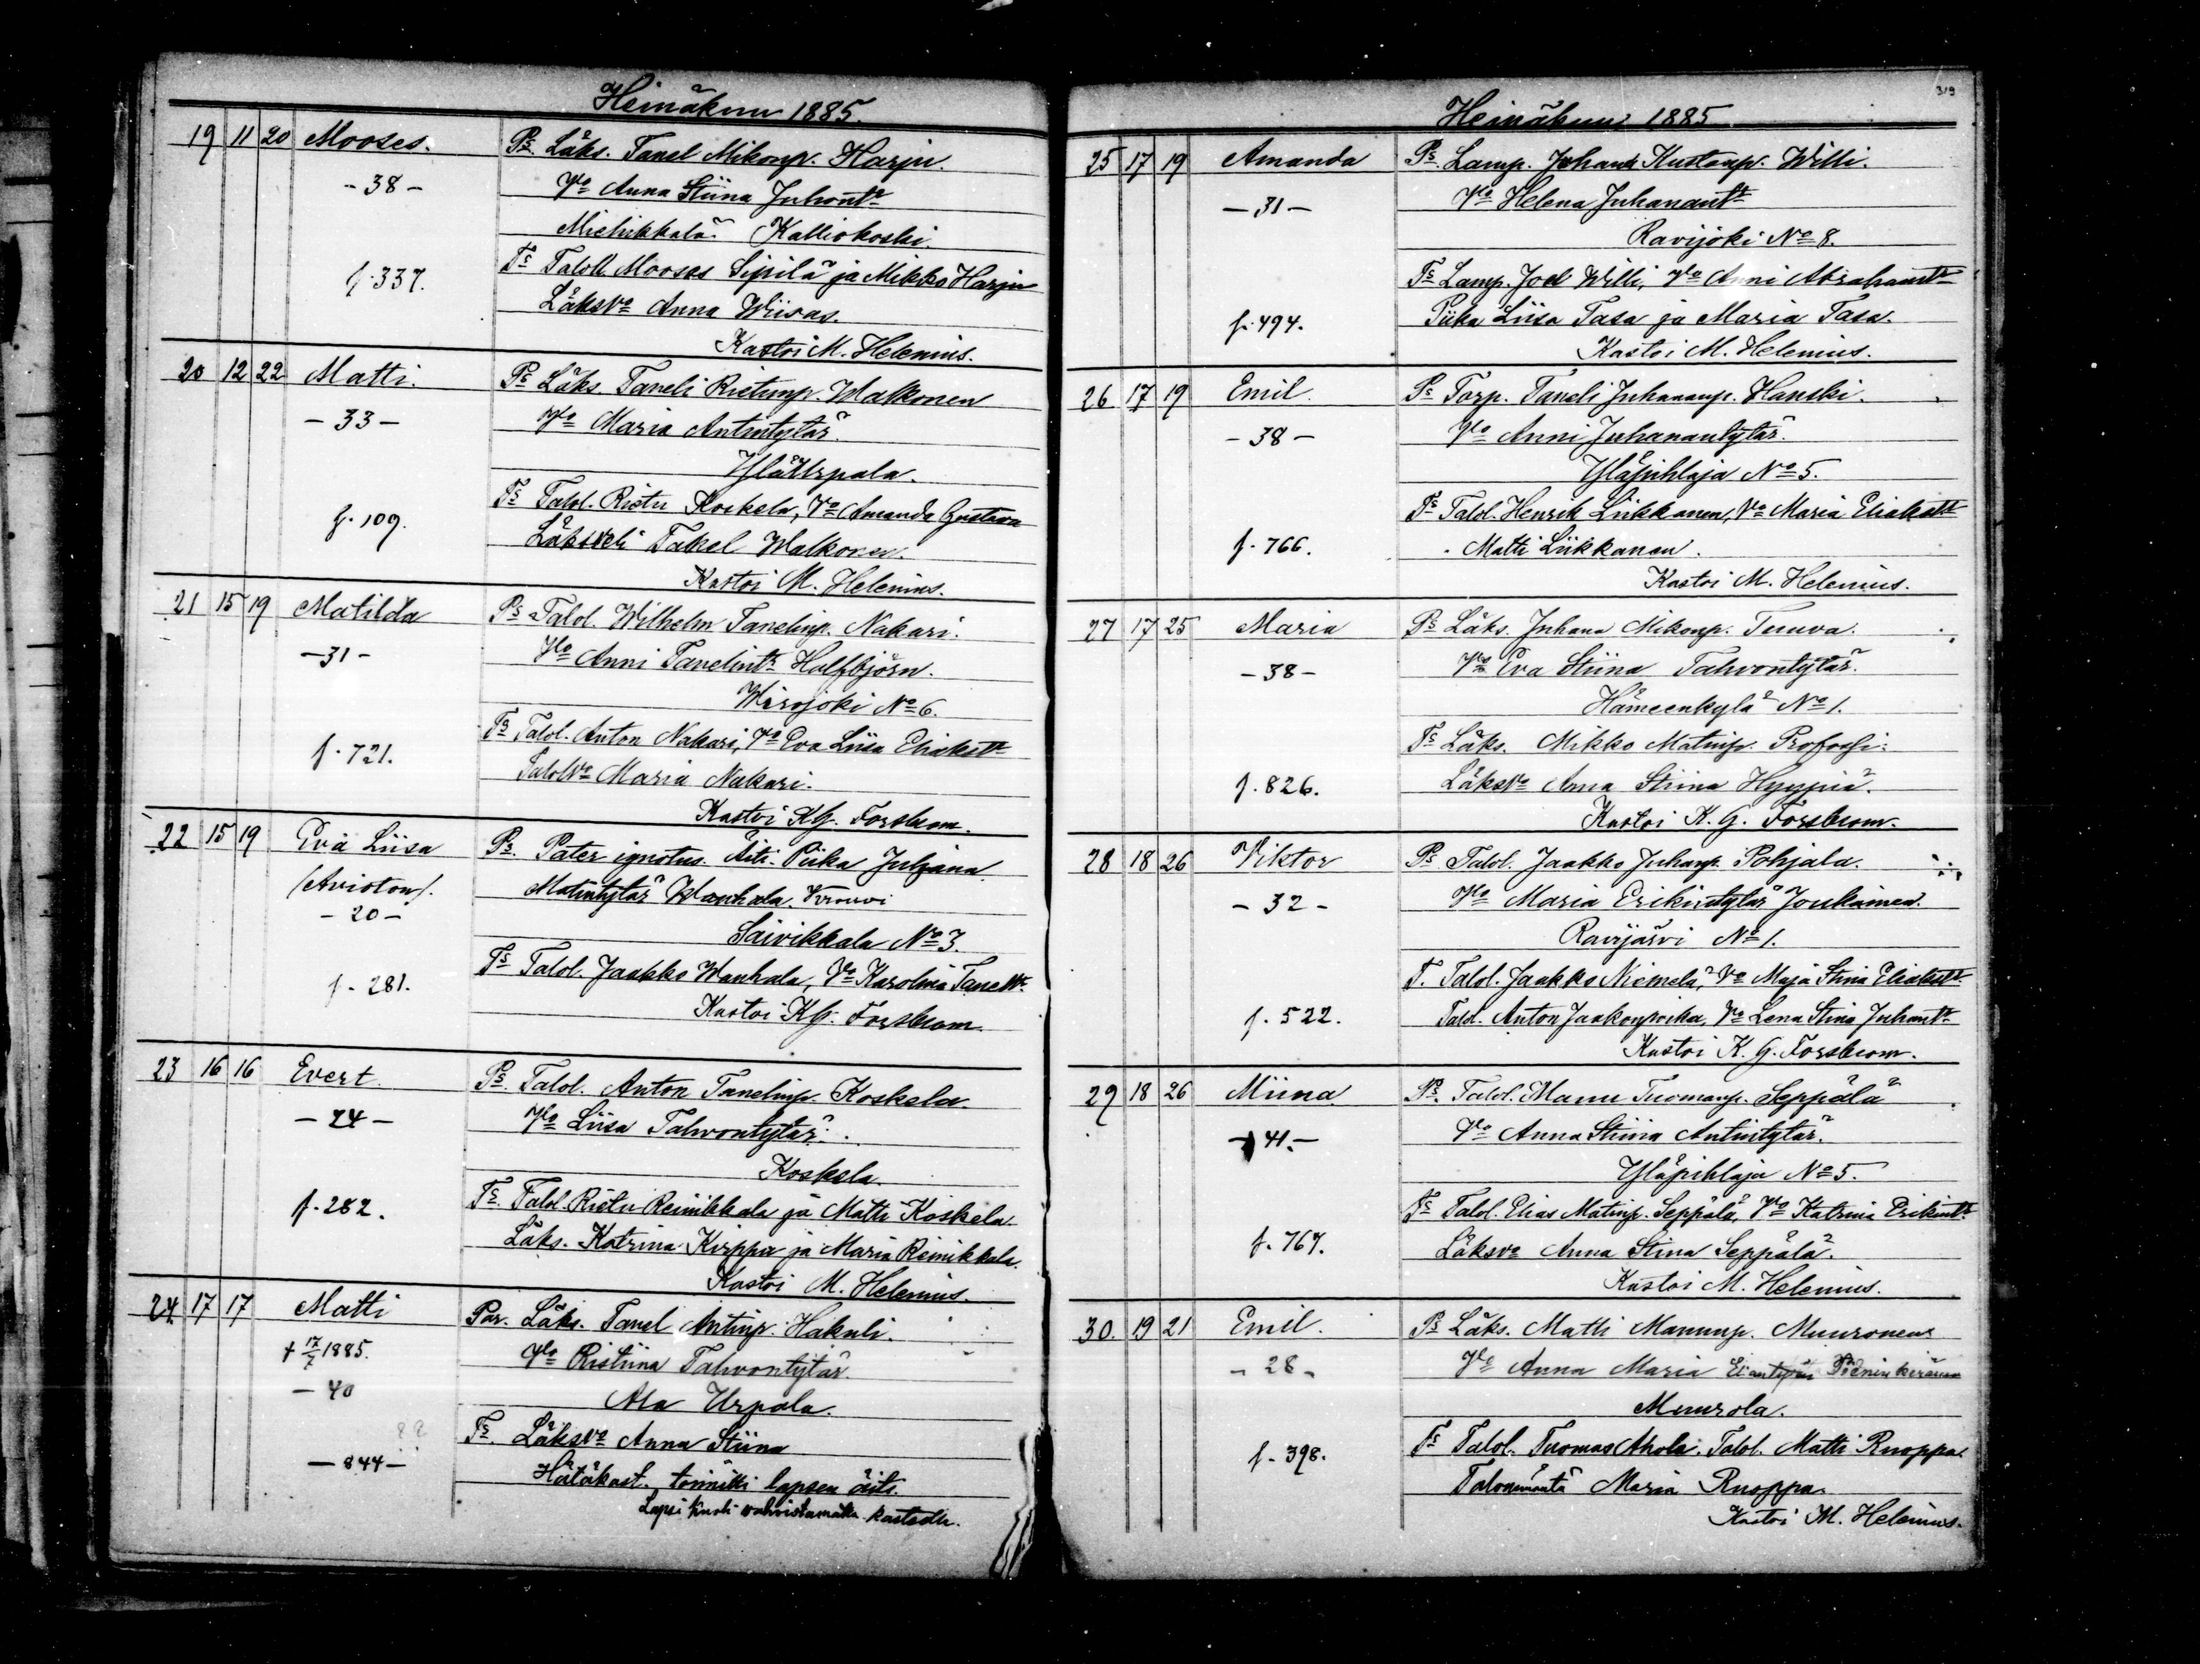 Heinäkuu 1885.
19 11 20 Mooses. Ps. Läks. Tanel Mikonp. Harju.
- 38 - Vo Anna Stiina Juhontr
Miehikkälä. Kalliokoski.
f. 337. Ts Taloll. Mooses Sipilä ja Mikko Harju
Läksvo Anna Wiisas.
Kastoi M. Helenius.
20 12 22 Matti. Ps Läks. Taneli Ristinp. Walkonen
- 33 - Vo Maria Antintytär.
YläUrpala.
f. 109. Ts Talol. Ristu Koskela, Vo Amanda Gustava
Läksveli Takel Walkonen.
Kastoi M. Helenius.
21 15 19 Matilda Ps Talol. Wilhelm Tanelinp. Nakari.
- 31 - Vo Anni Tanelintr Halfbjörn.
Wirojoki No 6.
f. 721. Ts Talol. Anton Nakari, Vo Eva Liisa Eliaksttr
Talolvo Maria Nakari.
Kastoi KG. Forsbom.
22 15 19 Eva Liisa Ps. Pater ignotus. Äiti. Piika Juljana
(Avioton). Matintytär Wanhala.
- 20 - Säivikkala No 3.
f. 281. Ts Talol. Jaakko Wanhala, Vo Karolina Tanelttr.
Kastoi KG. Forsbom.
23 16 16 Evert. Ps. Talol. Anton Tanelinp. Koskela.
- 24 - Vo Liisa Tahvontytär.
Koskela.
f. 282. Ts. Talol. Ristu Reinikkala ja Matti Koskela
Läks. Katrina Kirppu ja Maria Reinikkala.
Kastoi M. Helenius.
24 17 17 Matti Par. Läks. Tanel Antinp. Hakuli.
† 17/7 1885. Vo Ristiina Tahvontytär.
- 40 Ala Urpala.
82 Ts. Läksvo Anna Stiina
- 844 - Hätäkast. toimitti lapsen äiti.
Lapsi kuoli vahvistamatta kastetta.
319
Heinäkuu 1885
25 17 19 Amanda Ps. Lamp. Johan Kustaanp. Willi.
- 31 - Vo Helena Juhanantr
Ravijoki No 8.
Ts Lamp. Joel Willi, Vo Anni Abrahamttr
f. 494. Piika Liisa Tasa ja Maria Tasa.
Kastoi M. Helenius.
26 17 19 Emil. Ps Torp. Taneli Juhananp. Hanski.
- 38 - Vo Anni Juhanantytär.
Yläpihlaja No 5.
Ts Talol. Henrik Liikkanen, Vo Maria Eliaksttr
f. 766. Matti Liikkanen.
Kastoi M. Helenius.
27 17 25 Maria Ps Läks. Juhana Mikonp. Tuuva.
- 38 - Vo Eva Stiina Tahvontytär.
Hämeenkylä No 1.
Ts Läks. Mikko Matinp. Profossi.
f. 826. Läksvo Anna Stiina Hyypiä.
Kastoi K. G. Forsbom.
28 18 26 Viktor Ps Talol. Jaakko Juhanp. Pohjala.
- 32 - Vo Maria Erikintytär Joukainen.
Ravijärvi No 1.
T. Talol. Jaakko Niemelä, Vo Maja Stina Eliaksttr
f. 522. Talol. Anton Jaakonpoika, Vo Lena Stina Juhantr
Kastoi K. G. Forsbom.
29 18 26 Miina Ps. Talol. Manu Tuomanp. Seppälä
- 41. - Vo Anna Stiina Antintytär.
Yläpihlaja No 5.
Ts Talol. Elias Matinp. Seppälä, Vo Katrina Erikintr
f. 767. Läksvo Anna Stina Seppälä.
Kastoi M. Helenius.
30. 19 21 Emil. Ps Läks. Matti Manunp. Muuronen
- 28 - Vo Anna Maria
Muurola.
f. 398. Ts Talol. Tuomas Ahola. Talol. Matti Ruoppa.
Talonemäntä Maria Ruoppa.
Kastoi M. Helenius.